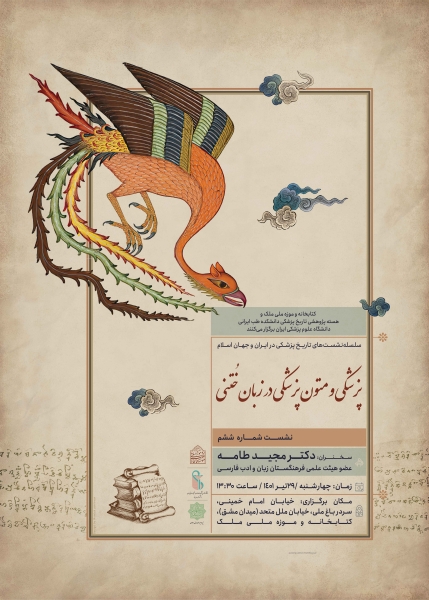 کتابخانه و موزه ملی ملک و
هسته پژوهشی تاریخ پزشکی دانشکده طب ایرانی
دانشگاه علوم پزشکی ایران برگزار می‌کنند
سلسله‌نشست‌های تاریخ پزشکی در ایران و جهان اسلام
پزشکی و متون پزشکی در زبان خُتَنی
نشست شماره ششم
سخنران: دکتر مجید طامه
عضو هیئت علمی فرهنگستان زبان و ادب فارسی
زمان: چهارشنبه /۲۹ تیر ۱۴۰۱/ ساعت ۱۳:۳۰
مکان برگزاری: خیابان امام خمینی،
سردر باغ ملی، خیابان ملل متحد (میدان مشق)،
کتابخانه و موزه ملی ملک